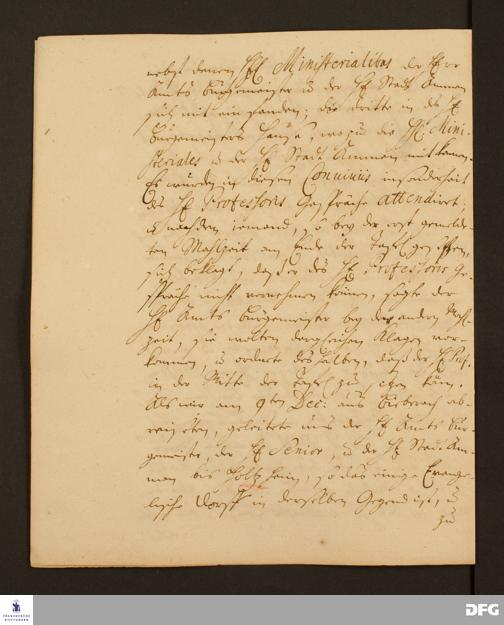 nebst denen HE. Ministerialibus der Herr
Amts Burgemeister u. der H. Stadt Amman
sich mit einfanden; die dritte in des H.
Burgemeisters Hause, wozu die HE. Mini-
steriales u. der H. Stadt Amman mit kamen.
Es wurden in diesen Conviviis insonderheit
des H. Professoris Gespräche attendiret:
u. nachdem iemand, so bey der erst gemelde-
ten Mahlzeit am Ende der Tafel gesessen,
sich beklagt, daß er des H. Professoris Ge-
spräche nicht vernehmen können, sagte der
H. Amts Burgemeister bey der andern Mahl-
zeit, sie wolten dergleichen Klagen vor-
kommen, u. ordnete deshalben, daß der H. Prof.
in der Mitte der Tafel zu sitzen käm.
Als wir am 9ten Dec: aus Bieberach ab-
reiseten, geleitete uns der H. Amts Bur-
gemeister, der H. Senior, u. der H. Stadt Am-
man bis Holtzheim, so das einige Evange-
lische Dorff in derselben Gegend ist, u.
zu
FRANCKESCHE
STIFTUNGEN
DFG